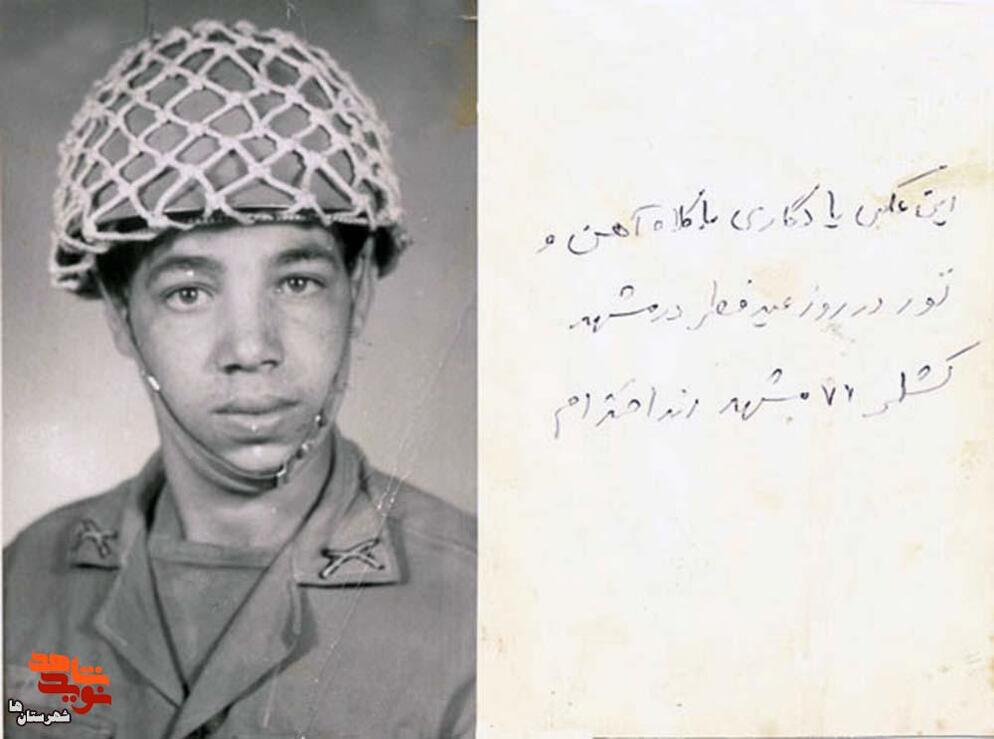 این عکس یادگاری با کلاه آهن و
تور در روز عید فطر در مشهد
لشگر ۷۷ مشهد
نوید شاهد
شهرستان‌ها